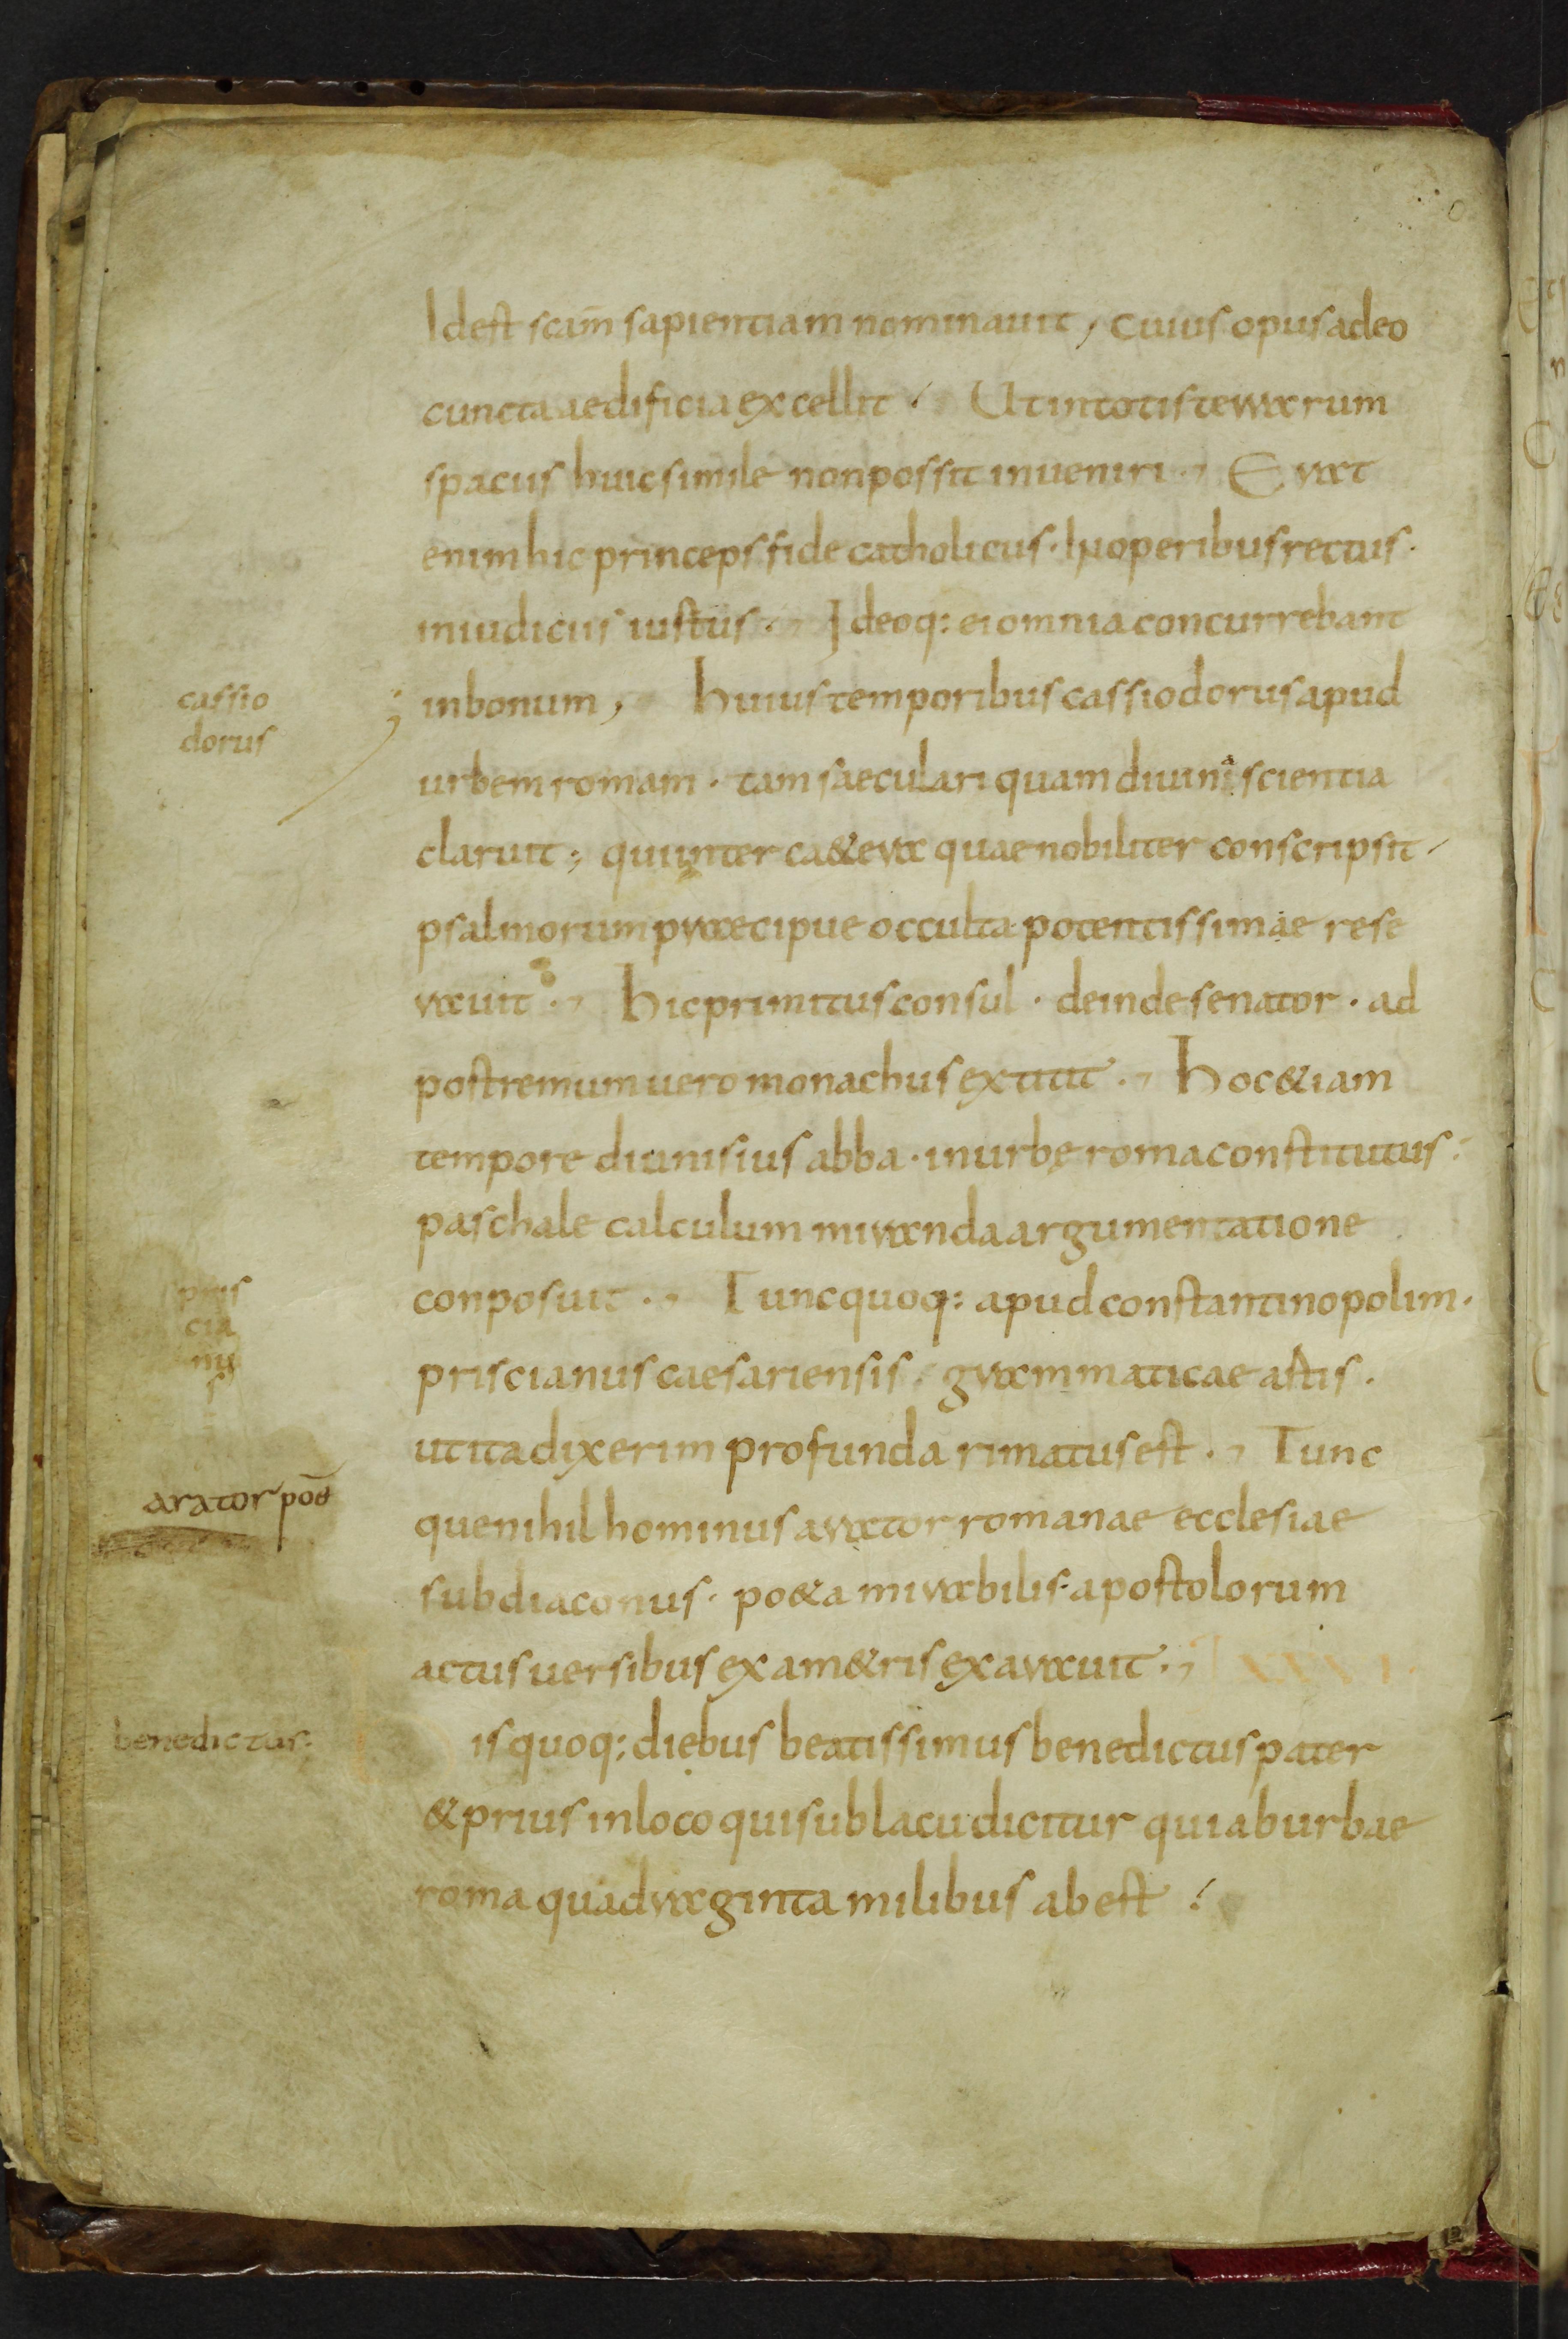 Idest scam̄ sapientiam nominauit, cuius opus adeo
cuncta aedificia excellit. Ut in totis terrarum
spaciis huic simile non possit inueniri. Erat
enim hic princeps fide catholicus. In operibus rectus.
in iudiciis iustus. Ideoq: ei omnia concurrebant
cassio
dorus
in bonum, Huius temporibus cassiodorus apud
urbem romam. tam saeculari quam diuina scientia
claruit; qui inter ca&era quae nobiliter conscripsit
psalmorum praecipue occulta potentissimae rese
rauit. Hic primitus consul. deinde senator. ad
postremum uero monachus extitit. Hoc &iam
tempore diunisius abba. in urbe roma constitutus.
paschale calculum miranda argumentatione
pris
cia
nu
s
conposuit. Tunc quoq: apud constantinopolim.
priscianus caesariensis. grammaticae astis.
ut ita dixerim profunda rimatus est. Tunc
arator po&
que nihilhominus arator romanae ecclesiae
subdiaconus. po&a mirabilis. apostolorum
actus uersibus exam&ris exarauit.
benedictus:
is quoq: diebus beatissimus benedictus pater
& prius in loco qui sublacu dicitur qui ab urbae
roma quadraginta milibus abest.